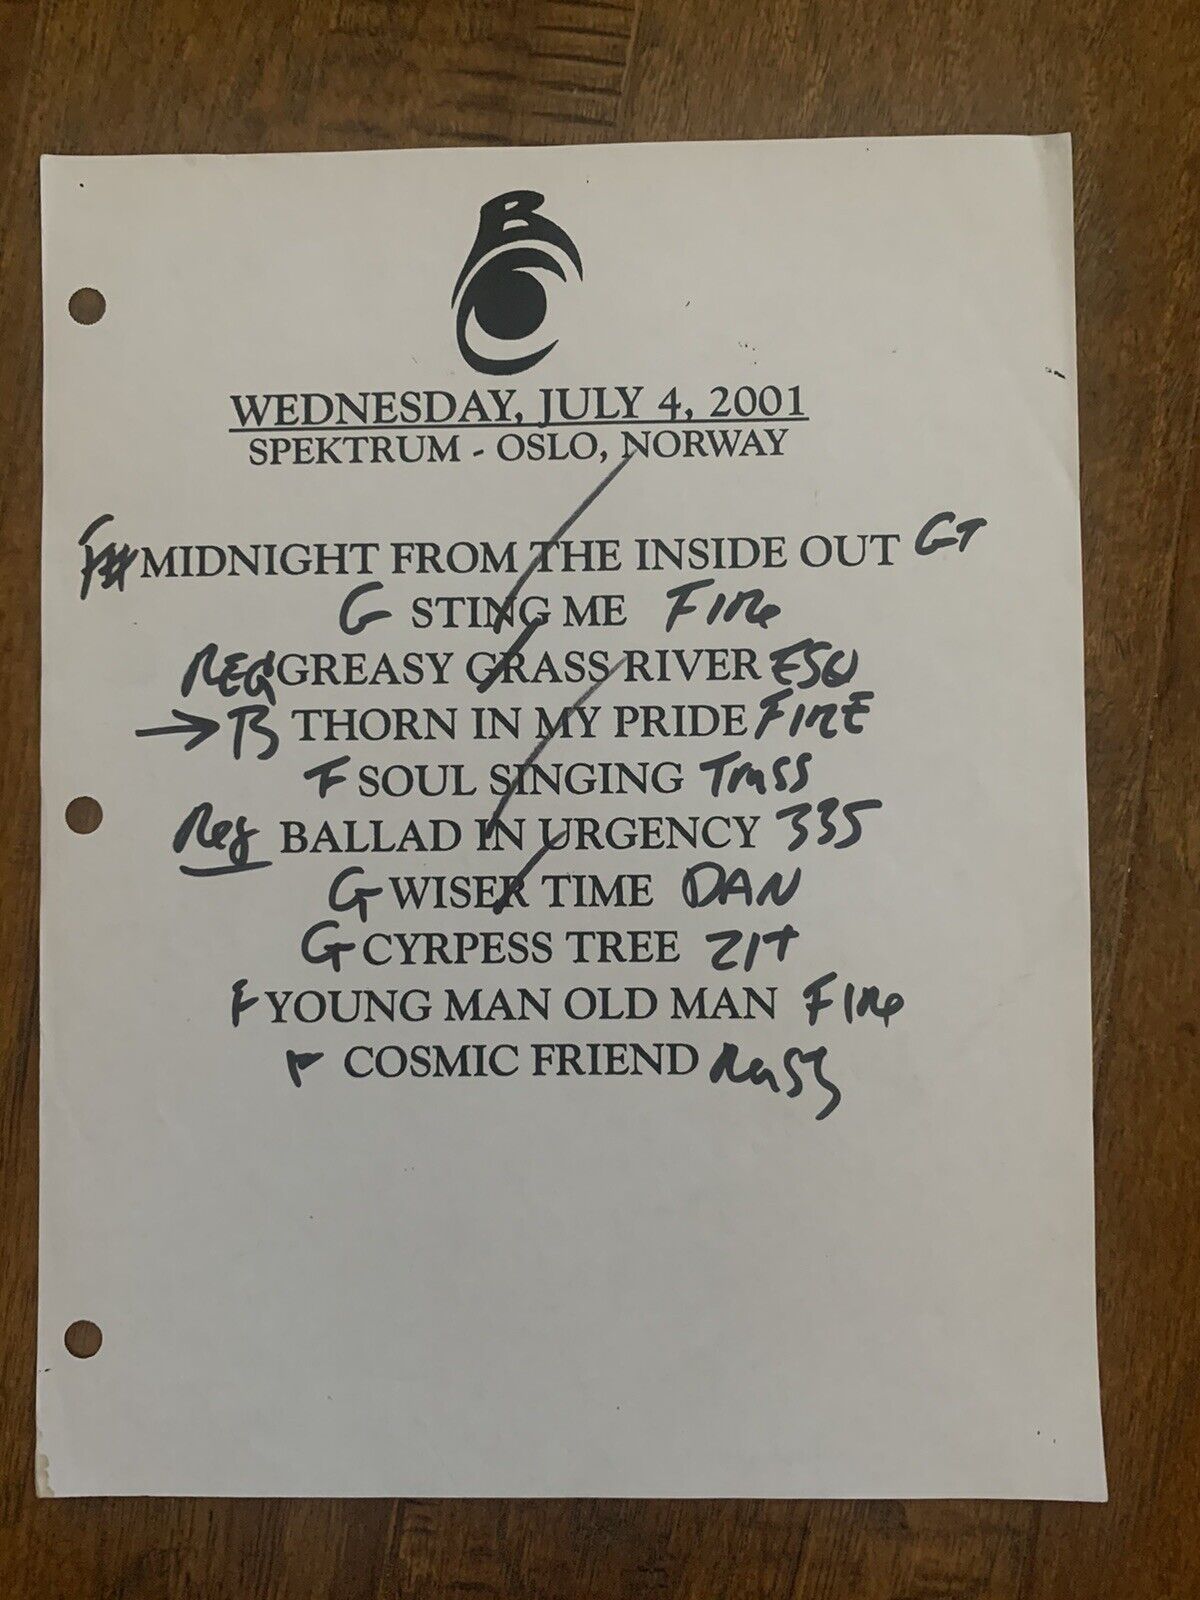 BC
WEDNESDAY, JULY 4, 2001
SPEKTRUM - OSLO, NORWAY
MIDNIGHT FROM THE INSIDE OUT GT
G STING ME FIRE
REG GREASY GRASS RIVER ESQ
→ B THORN IN MY PRIDE FIRE
F SOUL SINGING TRASS
Reg BALLAD IN URGENCY 335
G WISER TIME DAN
G CYRPESS TREE ZIT
F YOUNG MAN OLD MAN FIRE
F COSMIC FRIEND